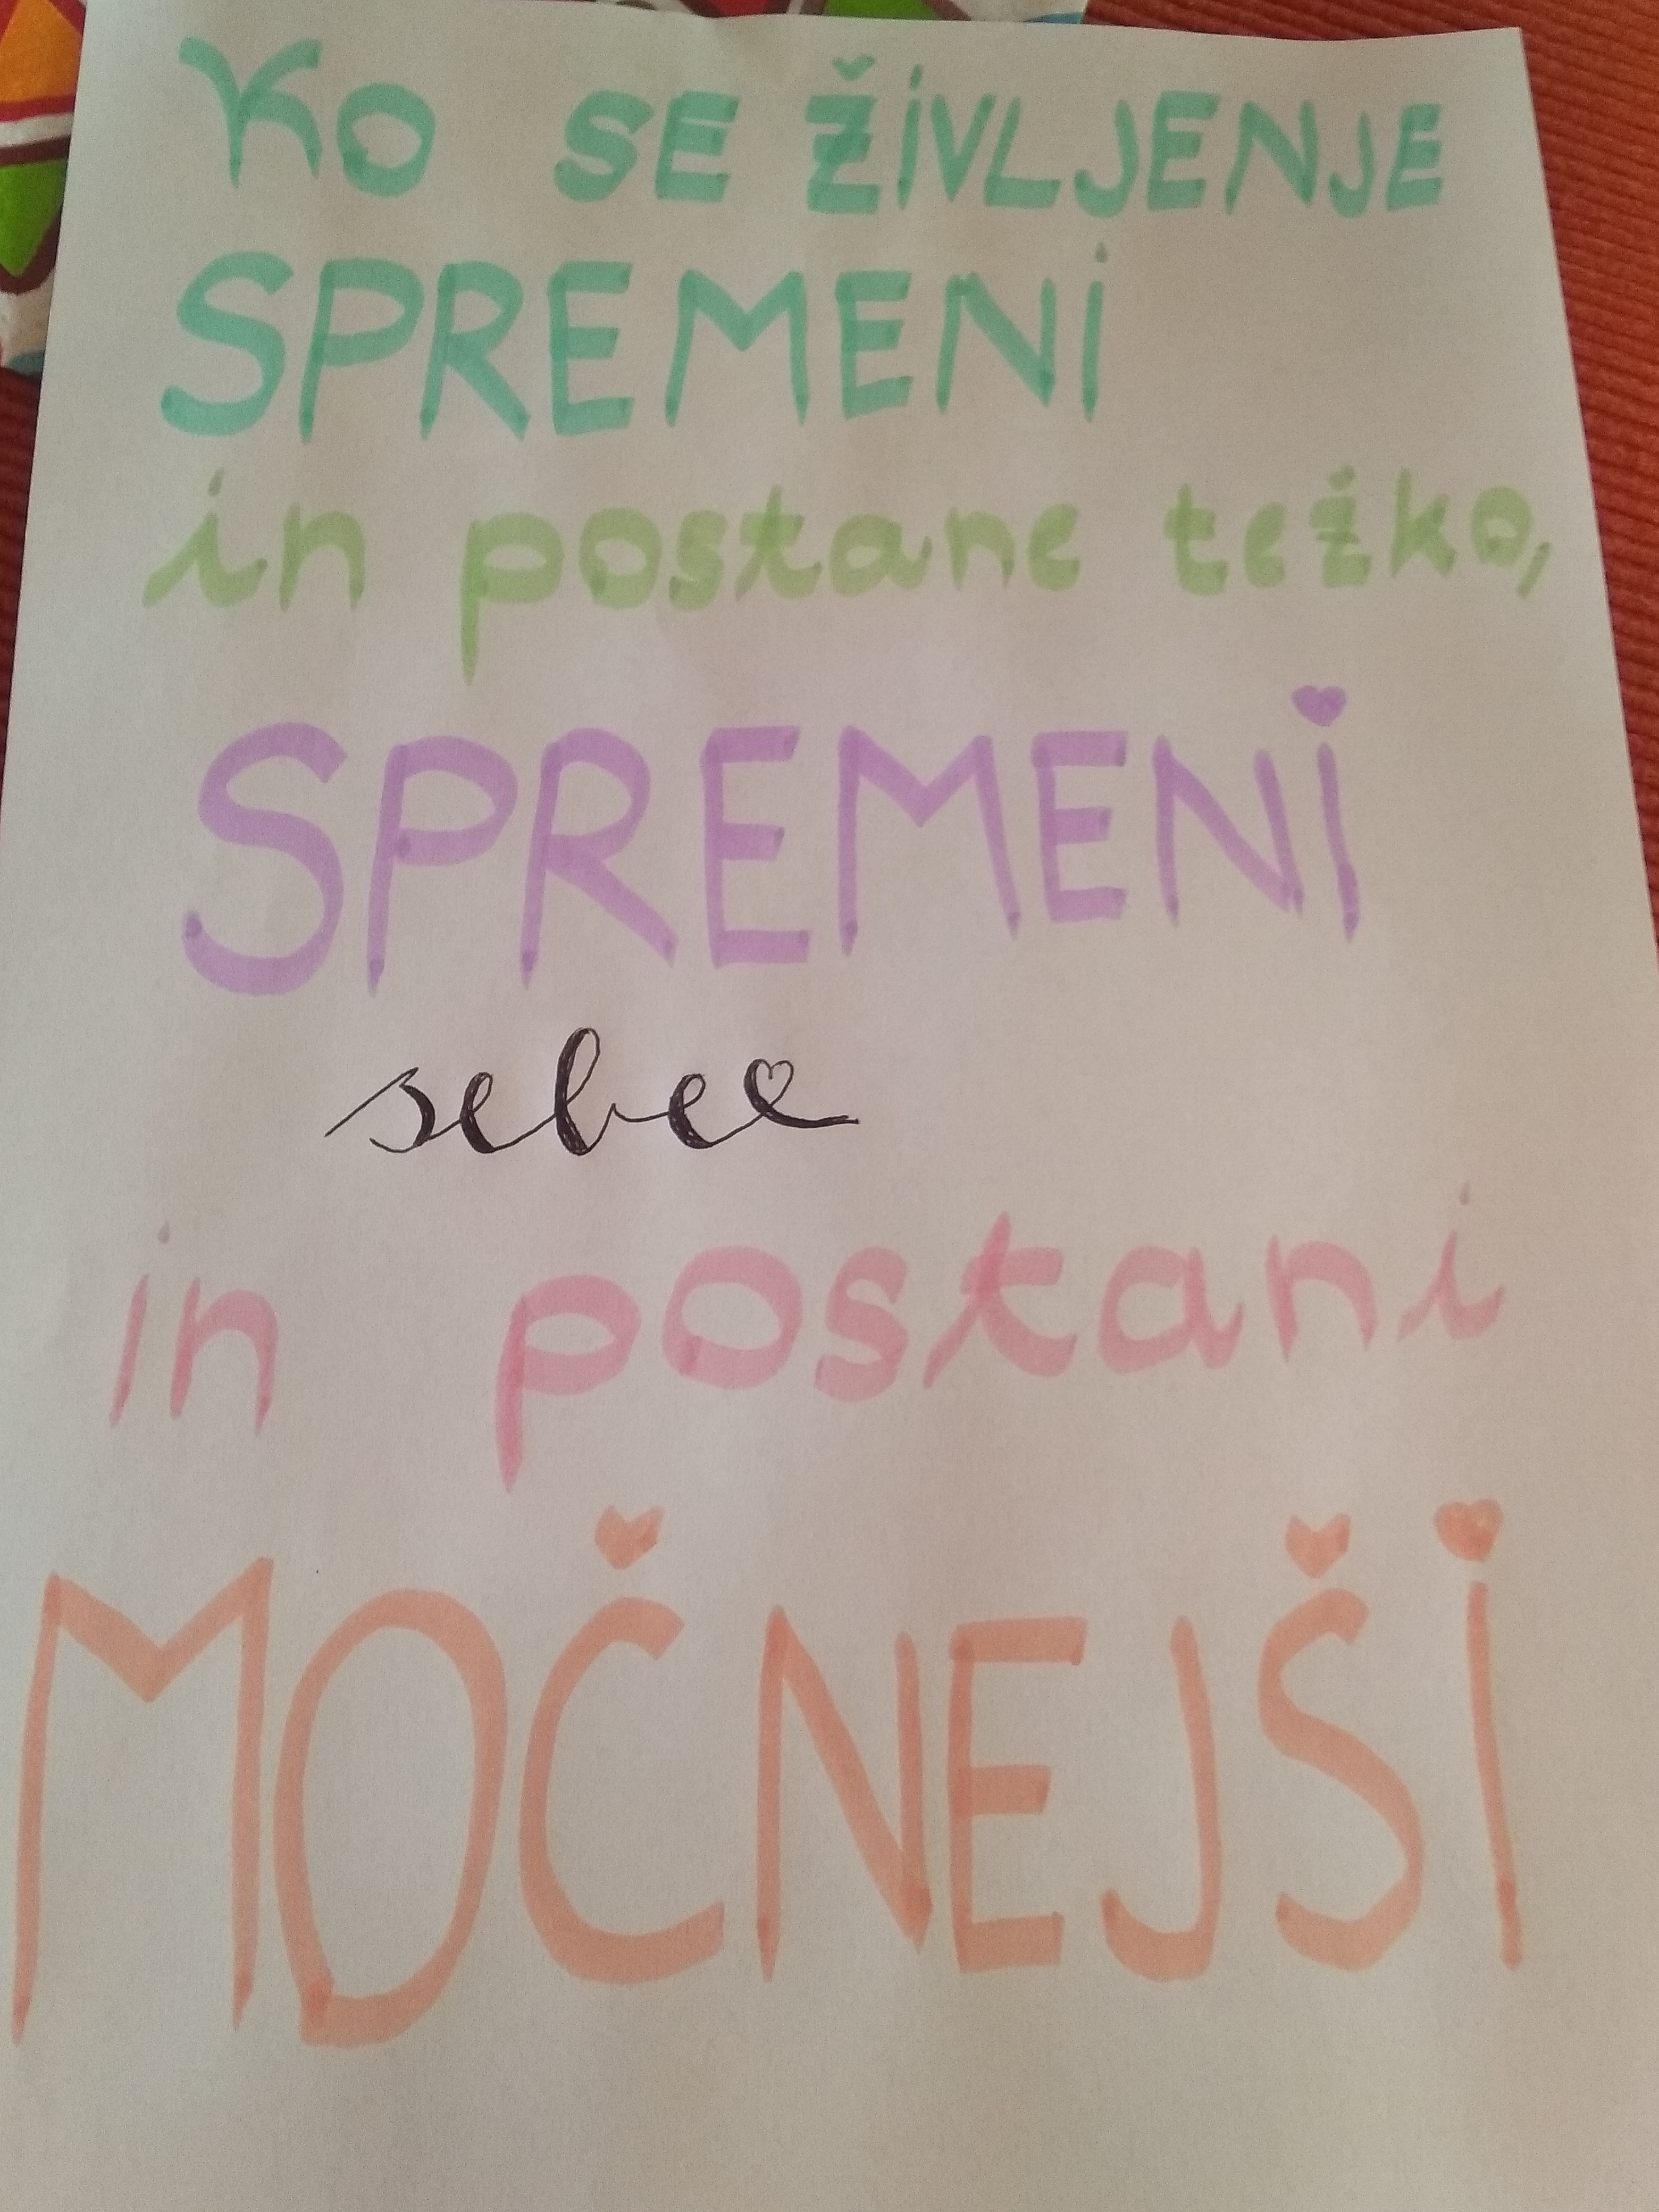 KO SE ŽIVLJENJE
SPREMENI
in postane težko,
SPREMENI
sebee
in postani
MOČNEJŠI